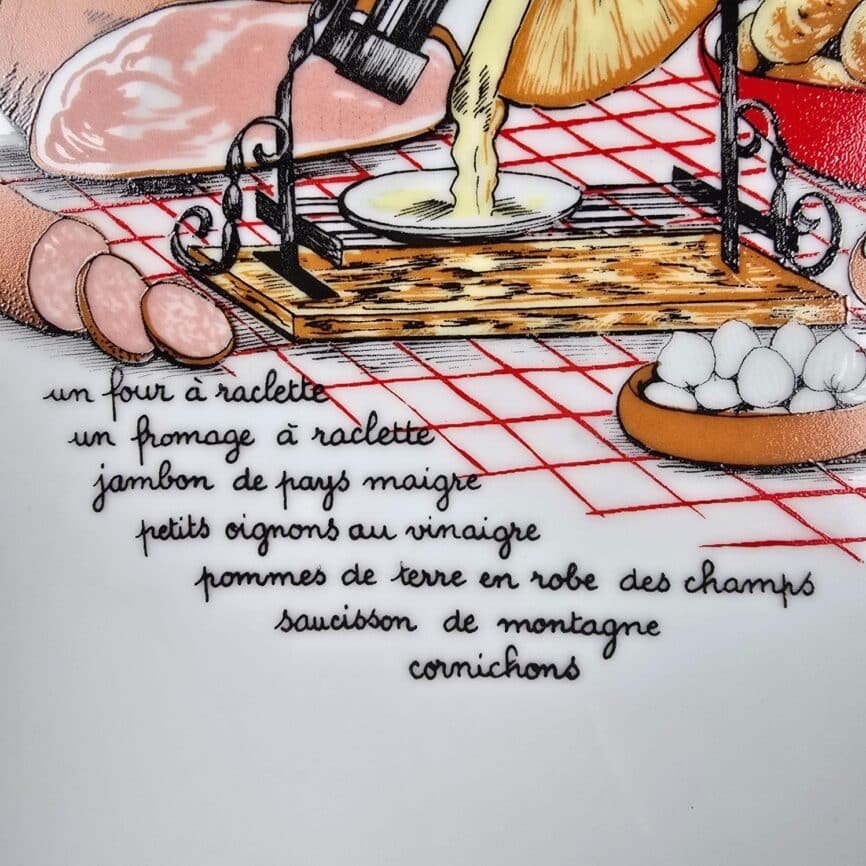 un four à raclette
un fromage à raclette
jambon de pays maigre
petits oignons au vinaigre
pommes de terre en robe des champs
saucisson de montagne
cornichons